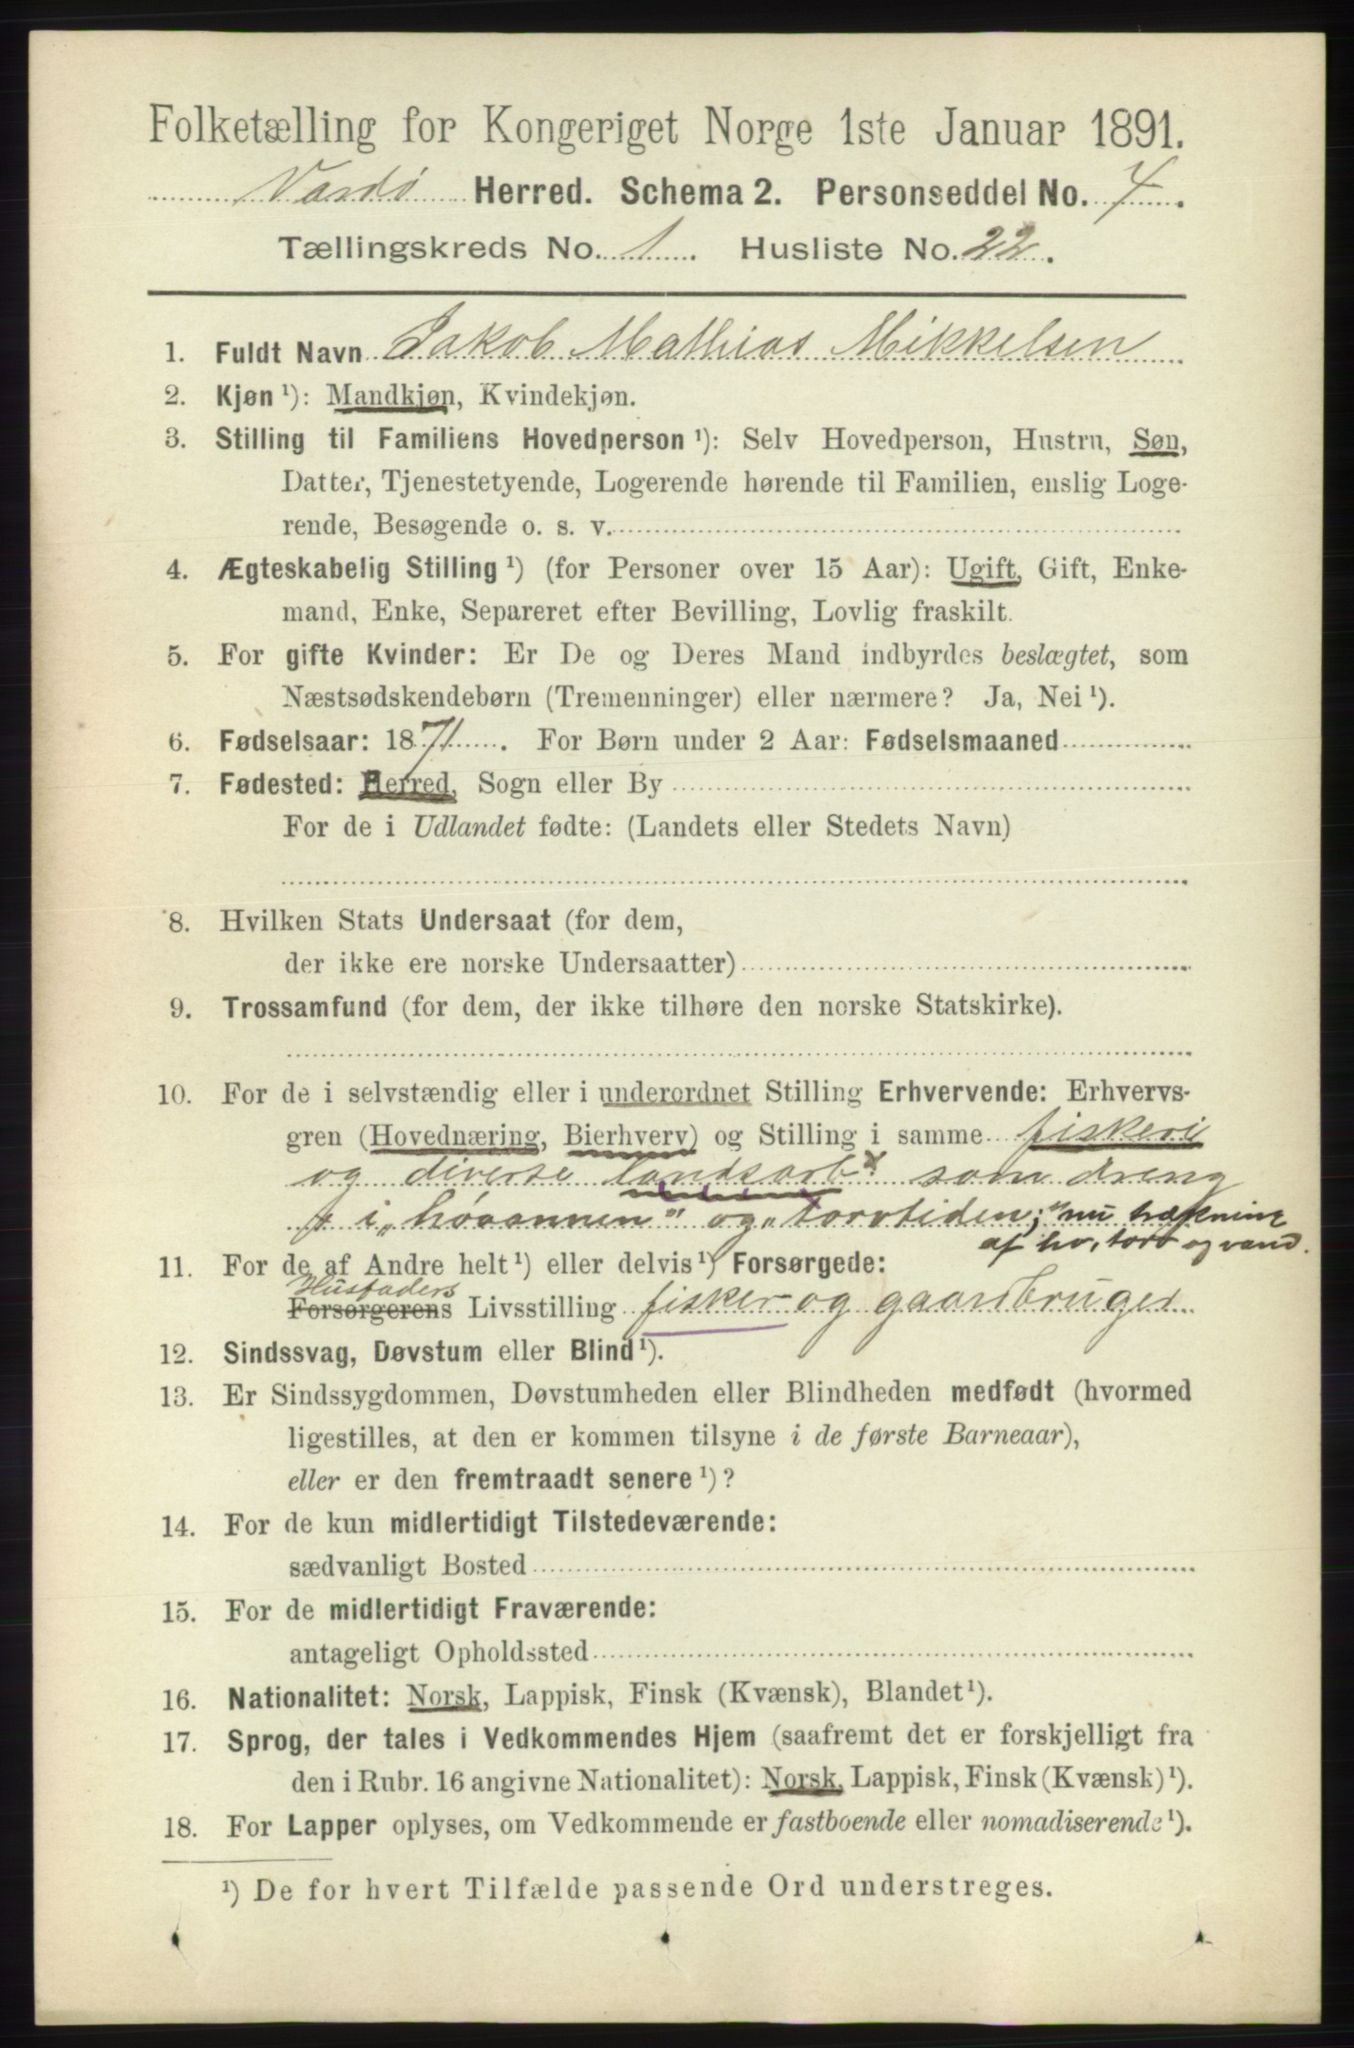 Folketælling for Kongeriget Norge 1ste Januar 1891.
Vardø Herred. Schema 2. Personseddel No. 4.
Tællingskreds No. 1. Husliste No. 22.
1. Fuldt Navn Jakob Mathias Mikkelsen
2. Kjøn ¹): Mandkjøn, Kvindekjøn.
3. Stilling til Familiens Hovedperson ¹): Selv Hovedperson, Hustru, Søn,
Datter, Tjenestetyende, Logerende hørende til Familien, enslig Loge-
rende, Besøgende o. s. v.
4. Ægteskabelig Stilling ¹) (for Personer over 15 Aar): Ugift, Gift, Enke-
mand, Enke, Separeret efter Bevilling, Lovlig fraskilt.
5. For gifte Kvinder: Er De og Deres Mand indbyrdes beslægtet, som
Næstsødskendebørn (Tremenninger) eller nærmere? Ja, Nei ¹).
6. Fødselsaar: 1871. For Børn under 2 Aar: Fødselsmaaned
7. Fødested: Herred, Sogn eller By
For de i Udlandet fødte: (Landets eller Stedets Navn)
8. Hvilken Stats Undersaat (for dem,
der ikke ere norske Undersaatter)
9. Trossamfund (for dem, der ikke tilhøre den norske Statskirke).
10. For de i selvstændig eller i underordnet Stilling Erhvervende: Erhvervs-
gren (Hovednæring, Bierhverv) og Stilling i samme fiskeri
og diverse landsarb. som dreng
i „høaannen" og „torvtiden; nu
af hø, torv og vand.
11. For de af Andre helt ¹) eller delvis ¹) Forsørgede:
Husfaders
Forsørgerens Livsstilling fisker og gaardbruger
12. Sindssvag, Døvstum eller Blind ¹).
13. Er Sindssygdommen, Døvstumheden eller Blindheden medfødt (hvormed
ligestilles, at den er kommen tilsyne i de første Barneaar),
eller er den fremtraadt senere ¹)?
14. For de kun midlertidigt Tilstedeværende:
sædvanligt Bosted
15. For de midlertidigt Fraværende:
antageligt Opholdssted
16. Nationalitet: Norsk, Lappisk, Finsk (Kvænsk), Blandet ¹).
17. Sprog, der tales i Vedkommendes Hjem (saafremt det er forskjelligt fra
den i Rubr. 16 angivne Nationalitet): Norsk, Lappisk, Finsk (Kvænsk) ¹).
18. For Lapper oplyses, om Vedkommende er fastboende eller nomadiserende ¹).
¹) De for hvert Tilfælde passende Ord understreges.